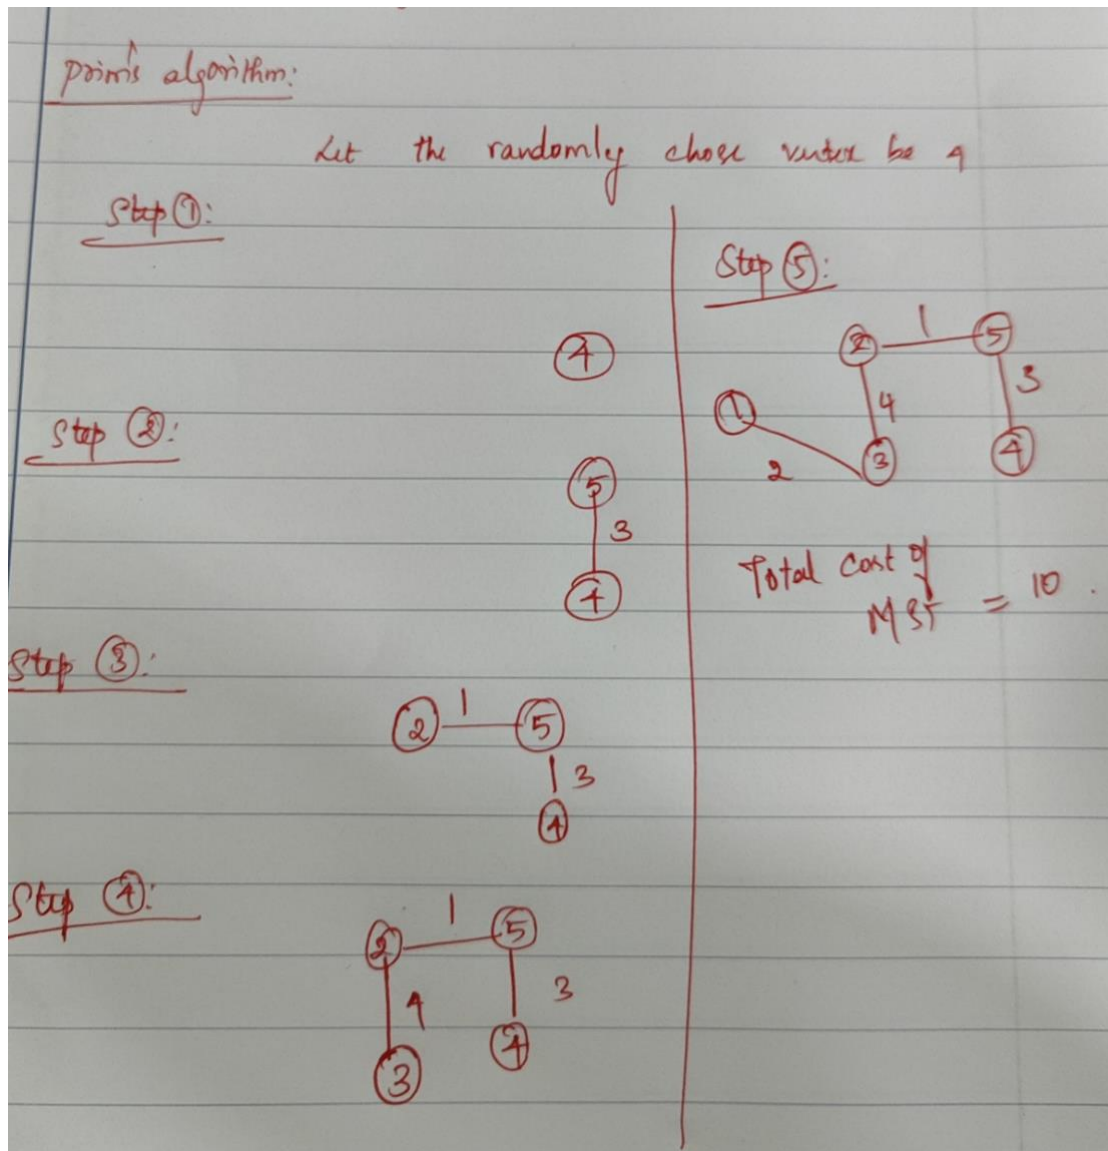 Prim's algorithm:
Let the randomly chose vertex be 4
Step ①:
④
Step ②:
⑤
3
④
Step ③:
② 1 ⑤
3
④
Step ④:
② 1 ⑤
4 3
③ ④
Step ⑤:
② 1 ⑤
① 4 3
2 ③ ④
Total cost of
MST = 10.